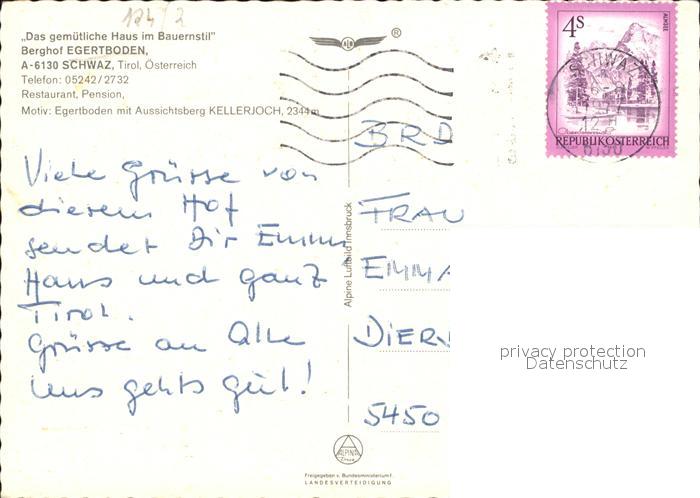 124/2
„Das gemütliche Haus im Bauernstil"
Berghof EGERTBODEN,
A-6130 SCHWAZ, Tirol, Österreich
Telefon: 05242/2732
Restaurant, Pension,
Motiv: Egertboden mit Aussichtsberg KELLERJOCH, 2344m
®
4s
ALMSEE
SCHWAZ
6130
REPUBLIK ÖSTERREICH
BRD
Viele Grüsse von
diesem Hof
sendet Dir Emma
Hans und ganz
Tirol.
Grüsse an Alle
Uns gehts gut!
Alpine Luftbild Innsbruck
FRAU
EMMA
DIER
5450
privacy protection
Datenschutz
ALPINA
Freigegeben v. Bundesministerium f.
LANDESVERTEIDIGUNG